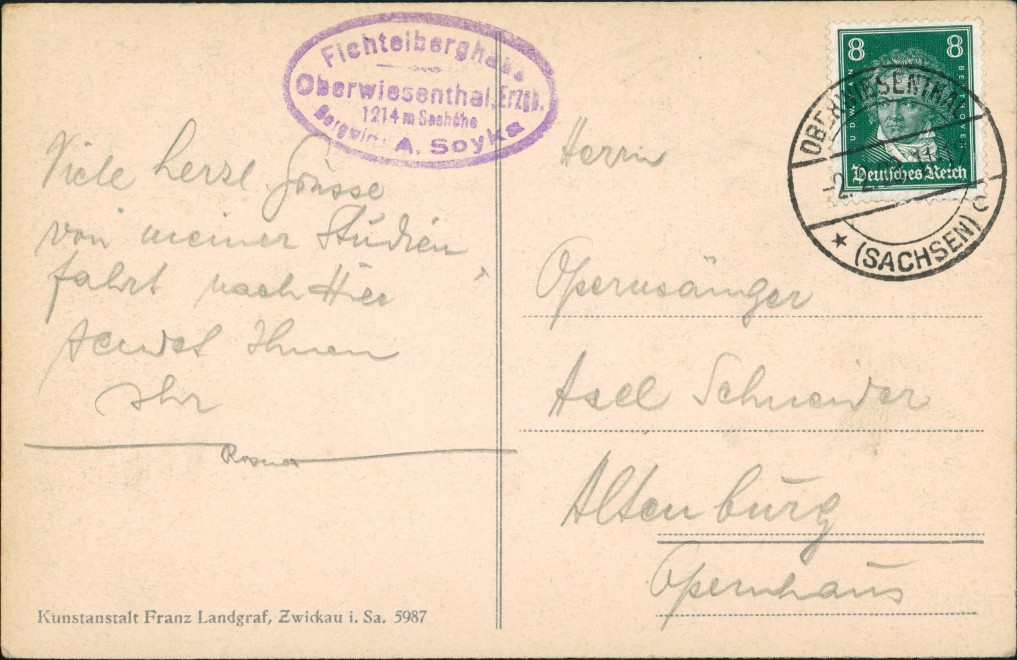 Fichtelberghaus
Oberwiesenthal, Erzgb.
1214 m Seehöhe
Bergwirt: A. Soyka
8 8
LUDWIG VAN BEETHOVEN
Deutsches Reich
OBERWIESENTHAL
-2.2. 11
* (SACHSEN) c
Viele herzl. Grüsse
von meiner Studien
fahrt nach Hier
sendet Ihnen
Ihr
Herrn
Opernsänger
Axel Schneider
Altenburg
Opernhaus
Kunstanstalt Franz Landgraf, Zwickau i. Sa. 5987